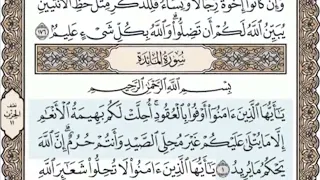 وَإِن كَانُوٓا۟ إِخْوَةً رِّجَالًا وَنِسَآءً فَلِلذَّكَرِ مِثْلُ حَظِّ ٱلْأُنثَيَيْنِ
يُبَيِّنُ ٱللَّهُ لَكُمْ أَن تَضِلُّوا۟ وَٱللَّهُ بِكُلِّ شَىْءٍ عَلِيمٌ ١٧٦
سُورَةُ المَائِدَةِ
بِسْمِ ٱللَّهِ ٱلرَّحْمَٰنِ ٱلرَّحِيمِ
يَٰٓأَيُّهَا ٱلَّذِينَ ءَامَنُوٓا۟ أَوْفُوا۟ بِٱلْعُقُودِ أُحِلَّتْ لَكُم بَهِيمَةُ ٱلْأَنْعَٰمِ
إِلَّا مَا يُتْلَىٰ عَلَيْكُمْ غَيْرَ مُحِلِّى ٱلصَّيْدِ وَأَنتُمْ حُرُمٌ إِنَّ ٱللَّهَ
يَحْكُمُ مَا يُرِيدُ ١ يَٰٓأَيُّهَا ٱلَّذِينَ ءَامَنُوا۟ لَا تُحِلُّوا۟ شَعَٰٓئِرَ ٱللَّهِ